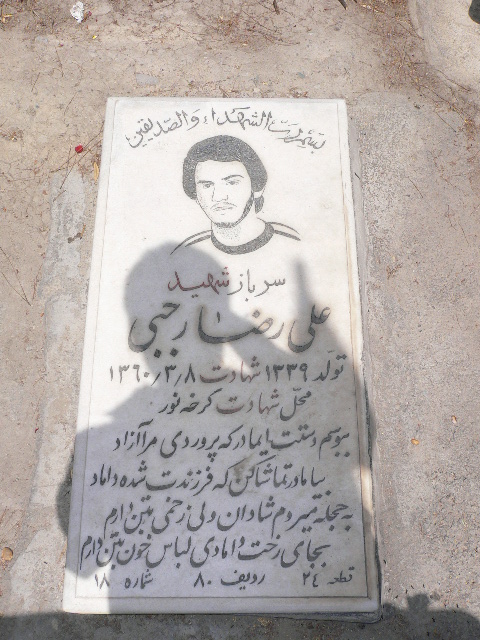 بسم رب الشهداء والصدیقین
سرباز شهید
علی رضا رجبی
تولد ۱۳۳۹ شهادت ۱۳۶۰/۳/۸
محل شهادت کرخه نور
ببوسم دستت ای مادر که پروردی مرا آزاد
بیا مادر تماشا کن که فرزندت شده داماد
به حجله میروم شادان ولی زخمی بتن دارم
بجای رخت دامادی لباس خون بتن دارم
قطعه ۲۴ ردیف ۸۰ شماره ۱۸